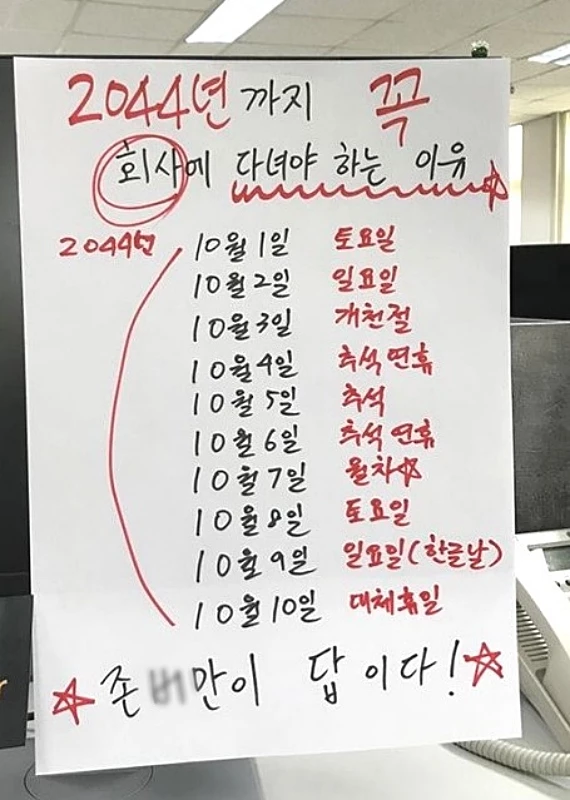 2044년 까지 꼭
회사에 다녀야 하는 이유
2044년 10월 1일 토요일
10월 2일 일요일
10월 3일 개천절
10월 4일 추석 연휴
10월 5일 추석
10월 6일 추석 연휴
10월 7일 월차
10월 8일 토요일
10월 9일 일요일(한글날)
10월 10일 대체휴일
존버만이 답이다!